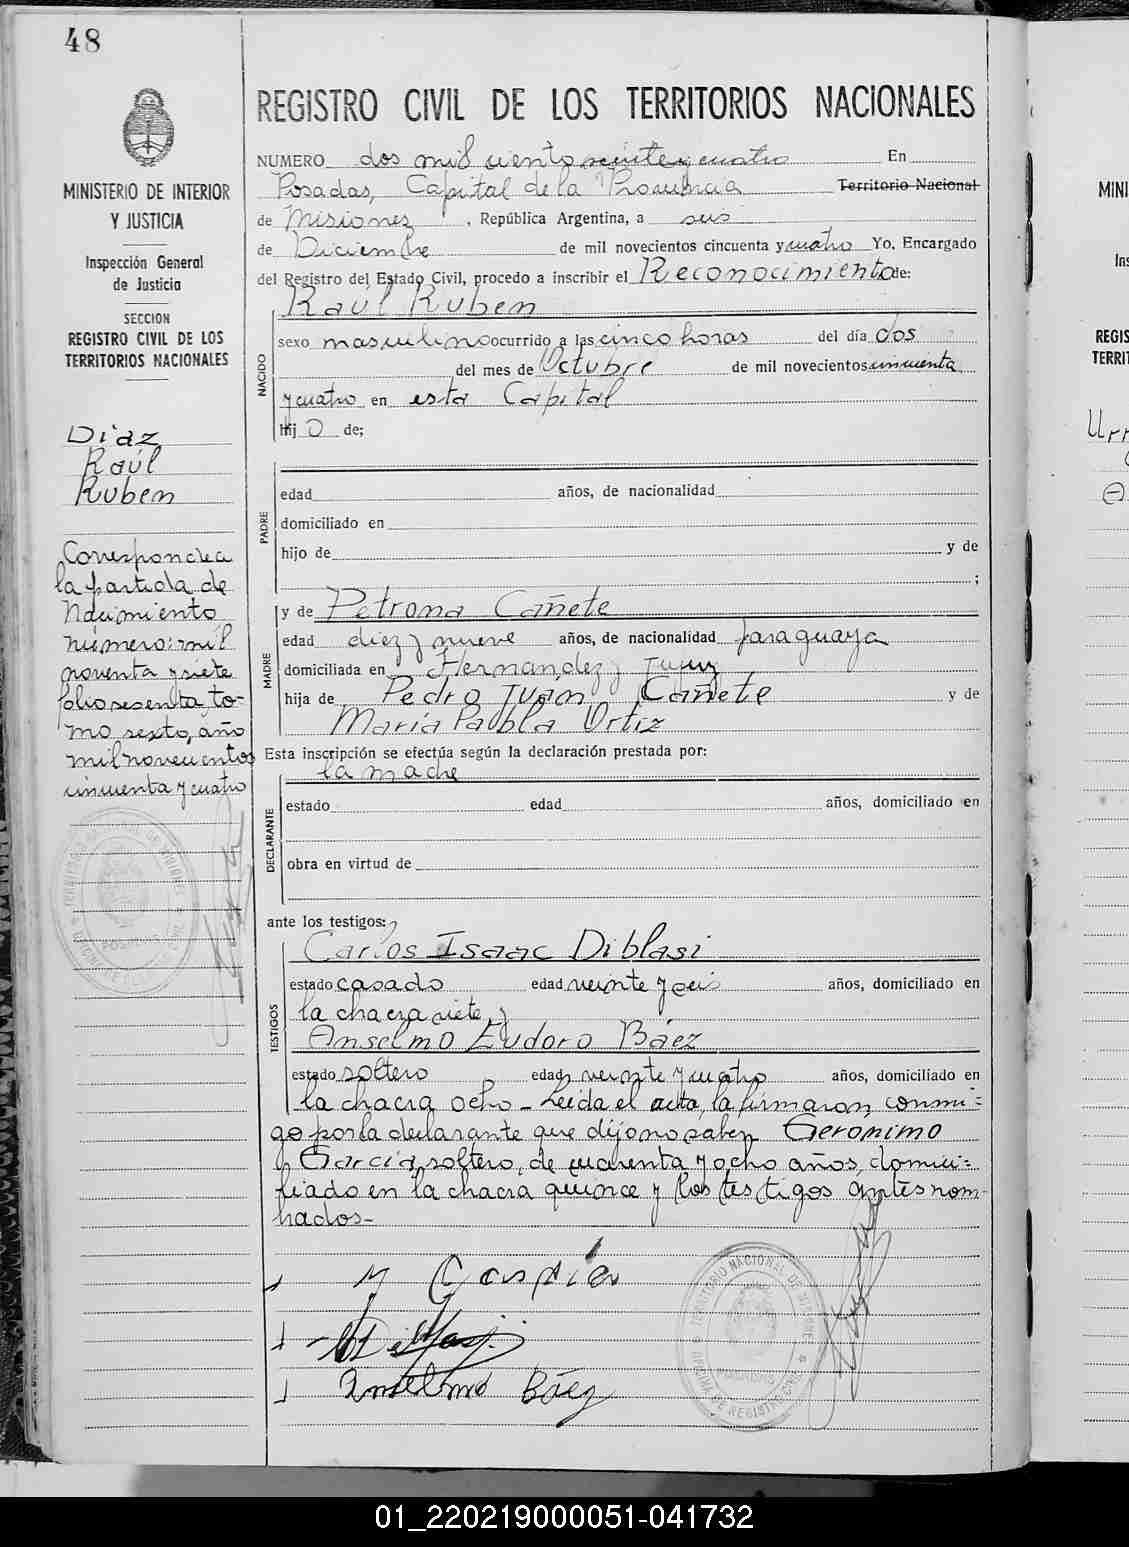 48
MINISTERIO DE INTERIOR
Y JUSTICIA
Inspección General
de Justicia
SECCION
REGISTRO CIVIL DE LOS
TERRITORIOS NACIONALES
Diaz
Raúl
Ruben
Corresponde a
la partida de
Nacimiento
número: mil
noventa y siete
folio sesenta, to-
mo sexto, año
mil novecientos
cincuenta y cuatro
REGISTRO CIVIL DE LOS TERRITORIOS NACIONALES
NUMERO dos mil ciento veinte y cuatro En
Posadas, Capital de la Provincia Territorio Nacional
de Misiones, República Argentina, a seis
de Diciembre de mil novecientos cincuenta y cuatro Yo, Encargado
del Registro del Estado Civil, procedo a inscribir el Reconocimiento de:
Raúl Ruben
NACIDO
sexo masculino ocurrido a las cinco horas del día dos
del mes de Octubre de mil novecientos cincuenta
y cuatro en esta Capital
hijo de;
PADRE
edad años, de nacionalidad
domiciliado en
hijo de y de
;
MADRE
y de Petrona Cañete
edad diez y nueve años, de nacionalidad paraguaya
domiciliada en Hernandez y Jujuy
hija de Pedro Juan Cañete y de
María Pabla Ortiz
Esta inscripción se efectúa según la declaración prestada por:
la madre
DECLARANTE
estado edad años, domiciliado en
obra en virtud de
ante los testigos:
TESTIGOS
Carlos Isaac Diblasi
estado casado edad veinte y seis años, domiciliado en
la chacra siete, y
Anselmo Eudoro Báez
estado soltero edad veinte y cuatro años, domiciliado en
la chacra ocho - Leída el acta, la firmaron, conmi-
go por la declarante que dijo no saber, Gerónimo
García, soltero, de cuarenta y ocho años, domici-
liado en la chacra quince y los testigos antes nom-
brados -
Anselmo Báez
TERRITORIO NACIONAL DE MISIONES
OFICINA DE REGISTRO CIVIL
POSADAS
MINI
Ins
REGIS
TERRIT
01_220219000051-041732